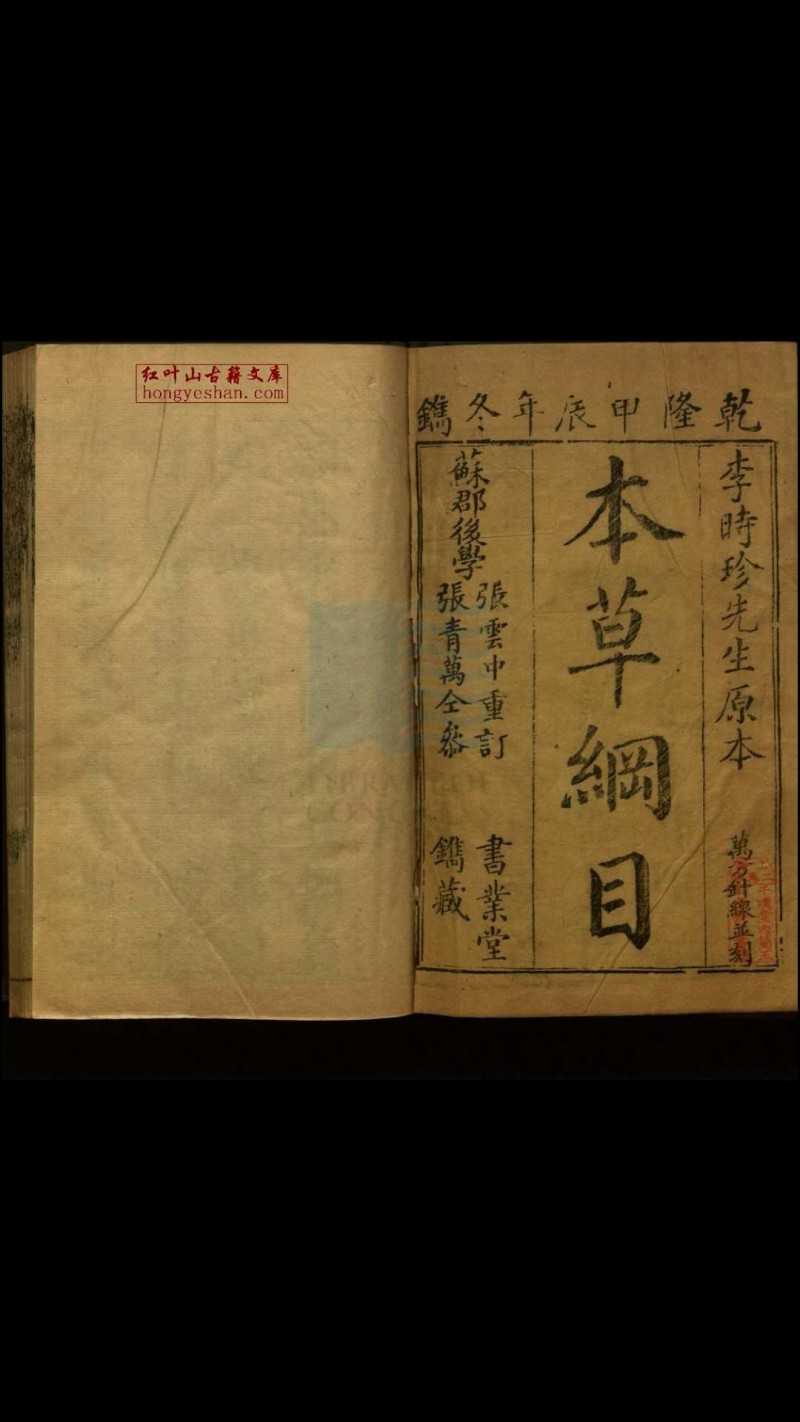 红叶山古籍文库
hongyeshan.com
乾隆甲辰年冬鐫
李時珍先生原本
萬方針線並刻
本草綱目
蘇郡後學
張雲中重訂
張青萬仝叅
書業堂
鐫藏